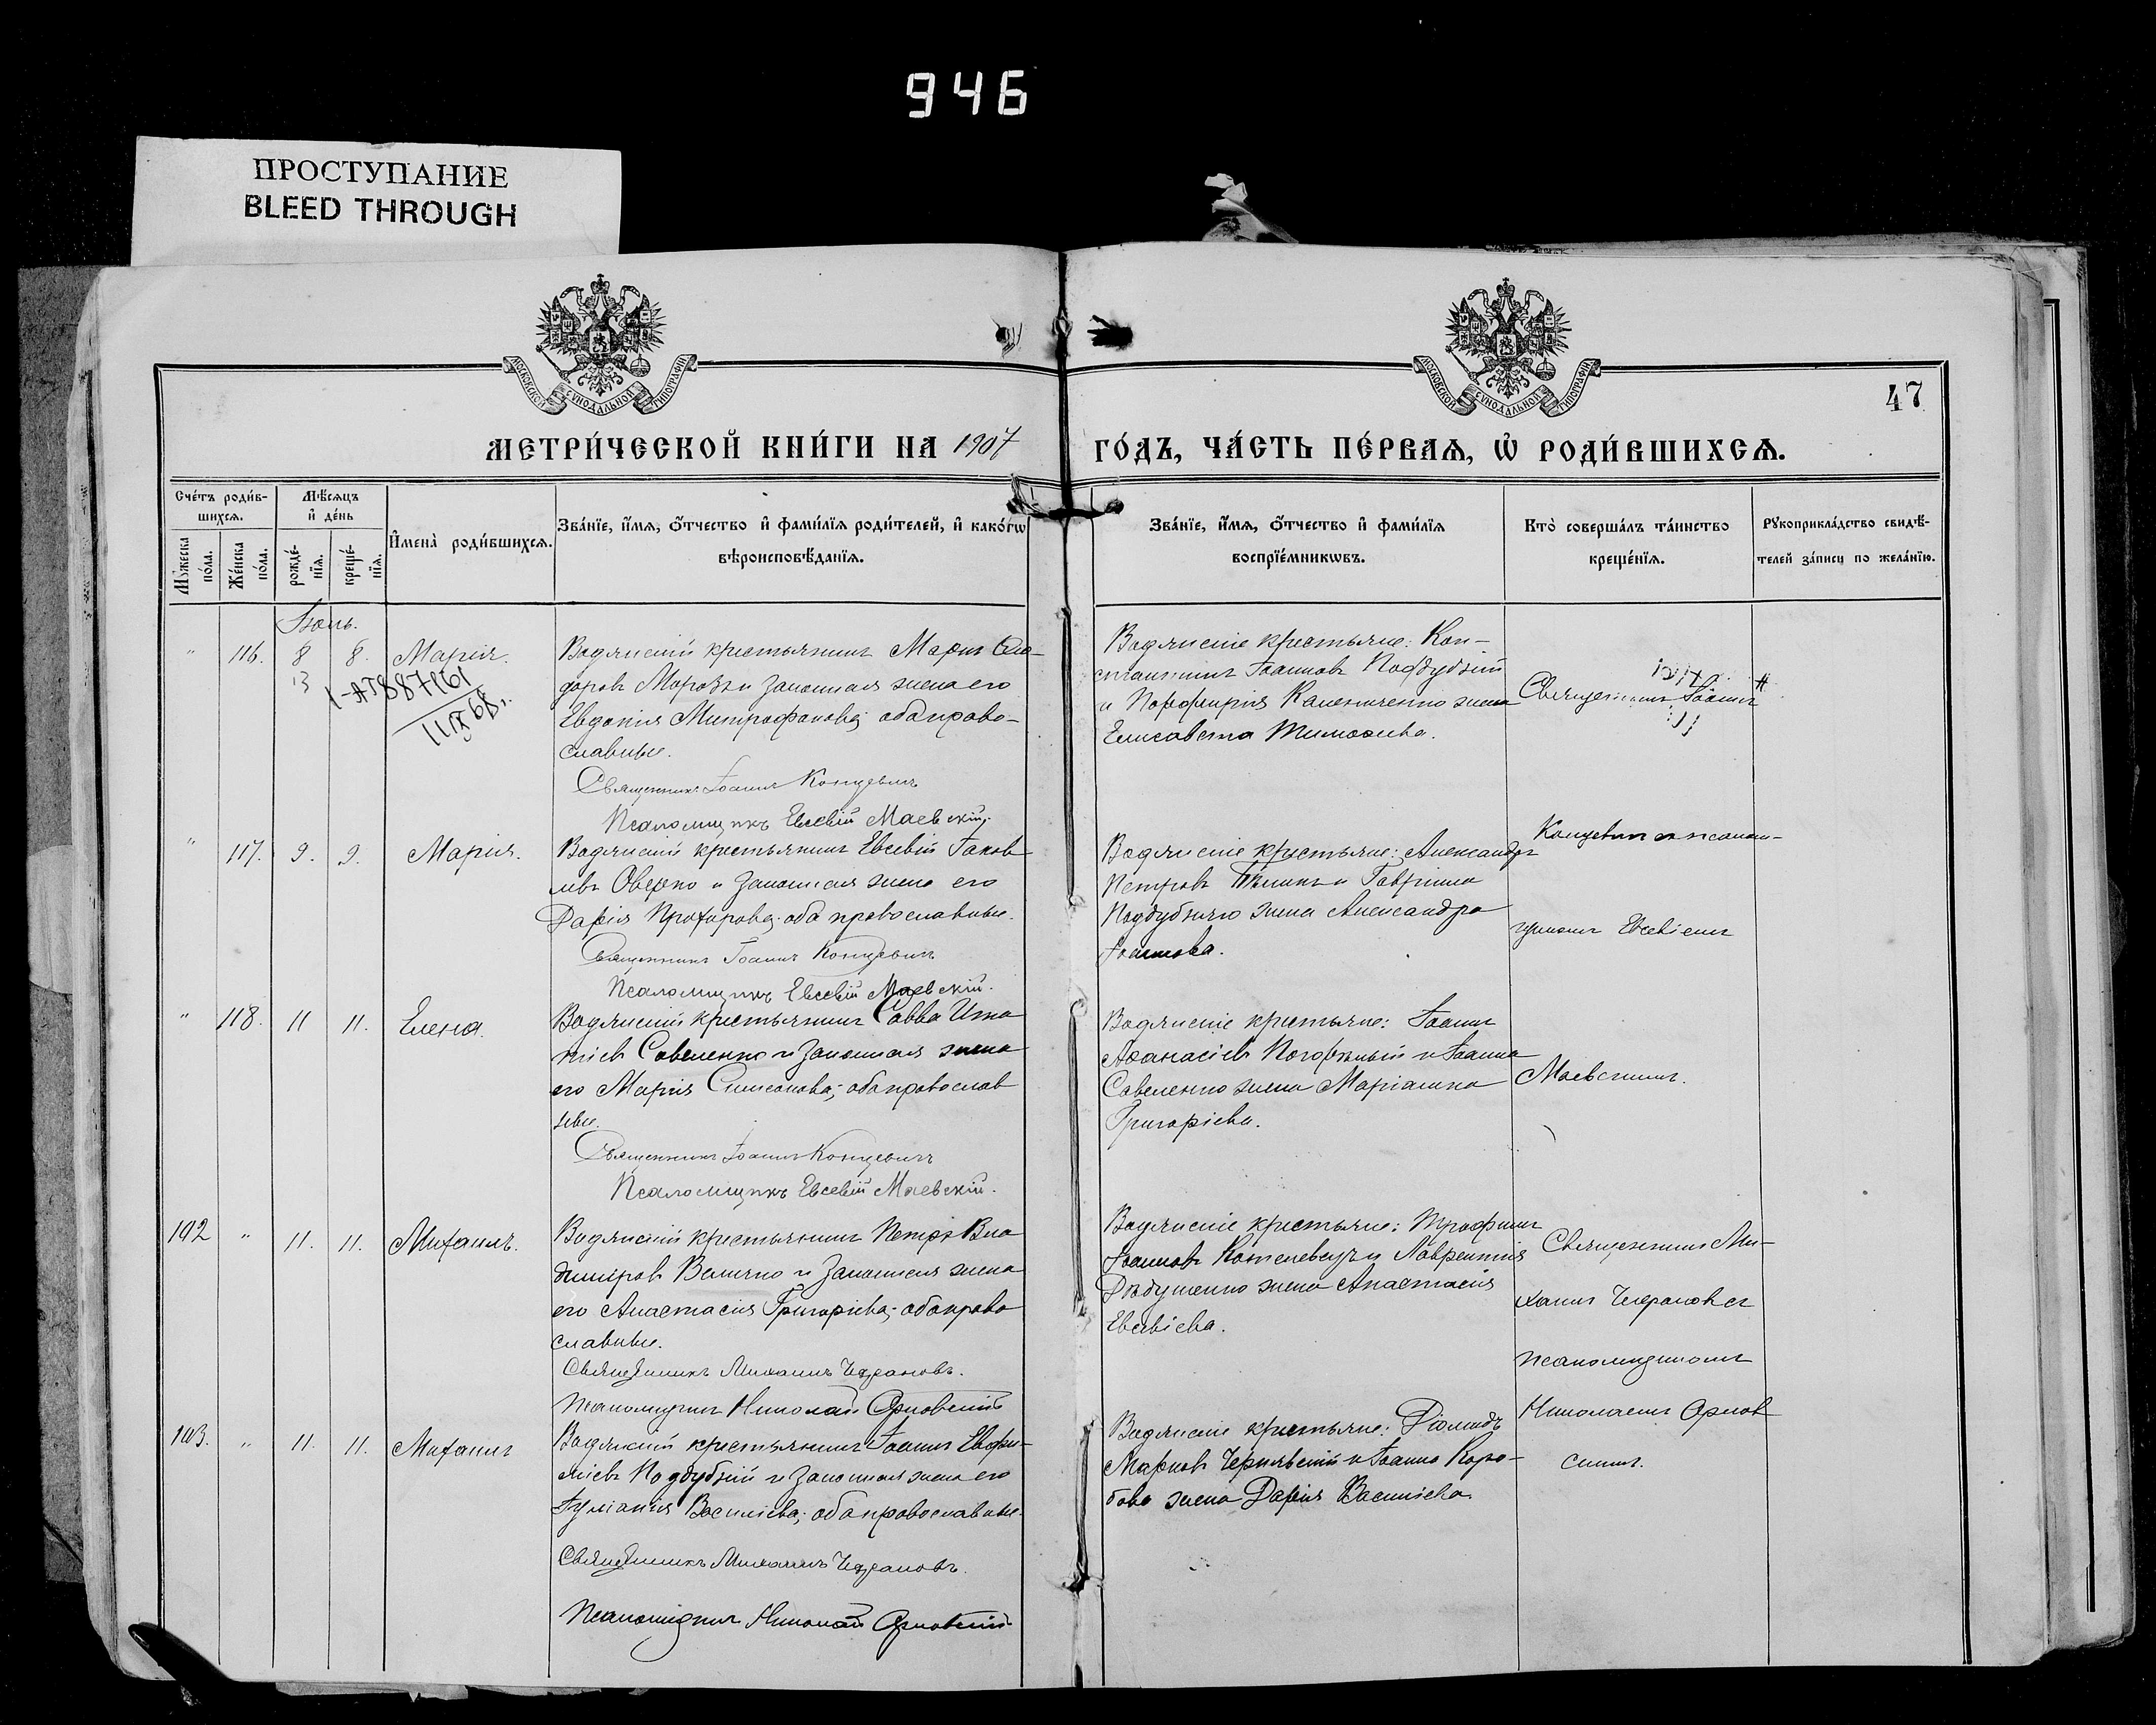 946
ПРОСТУПАНИЕ
BLEED THROUGH
МОСКОВСКОЙ СѴНОДАЛЬНОЙ ТИПОГРАФІИ
МОСКОВСКОЙ СѴНОДАЛЬНОЙ ТИПОГРАФІИ
47
МЕТРИ́ЧЕСКОЙ КНИ́ГИ НА 1907 ГО́ДЪ, ЧА́СТЬ ПЕ́РВАѦ, Ѽ РОДИ́ВШИХСѦ.
Сче́тъ роди́в-
шихсѧ.
Мꙋ́жеска по́ла.
Же́нска по́ла.
Мѣ́сѧцъ
и҆ де́нь
рожде́-
нїѧ.
креще́-
нїѧ.
И҆мена̀ роди́вшихсѧ.
Зва́нїе, и҆́мѧ, ѻ҆́тчество и҆ фами́лїѧ роди́телей, и҆ како́гѡ
вѣроисповѣ́данїѧ.
Зва́нїе, и҆́мѧ, ѻ҆́тчество и҆ фами́лїѧ
воспрїе́мникѡвъ.
Кто̀ соверша́лъ та́инство
креще́нїѧ.
Рꙋкоприкла́дство свидѣ́-
телей за́писи по жела́нїю.
Іюль.
" 116. 8 8. Марія.
13
I-АП 887161
11 IX 68г.
Водянскій крестьянинъ Маркъ Сидоровъ Морозъ и законная жена его
Евдокія Митрофанова; оба право-
славные.
Священникъ Іоаннъ Концевичъ
Псаломщикъ Евсевій Маевскій.
Водянскіе крестьяне: Кон-
стантинъ Іоанновъ Поддубный
и Порфирія Калениченко жена
Елисавета Тимофеева.
Священникъ Іоаннъ
" 117. 9. 9. Марія.
Водянскій крестьянинъ Евсевій Іаков-
левъ Оверко и законная жена его
Дарія Прохорова; оба православные.
Священникъ Іоаннъ Концевичъ
Псаломщикъ Евсевій Маевскій.
Водянскіе крестьяне: Александръ
Петровъ и Гавріила
Поддубнаго жена Александра
Іоаннова.
Концевич съ псалом-
щикомъ Евсевіемъ
" 118. 11 11. Елена.
Водянскій крестьянинъ Савва Игна
тіевъ Савеленко и законная жена
его Марія Симеонова; оба православ
ные.
Священникъ Іоаннъ Концевичъ
Псаломщикъ Евсевій Маевскій.
Водянскіе крестьяне: Іоаннъ
Аѳанасіевъ Погорѣлый и Іоанна
Савеленко жена Маріанна
Григоріева.
Маевскимъ.
102 " 11. 11. Михаилъ.
Водянскій крестьянинъ Петръ Вла
диміровъ Величко и законная жена
его Анастасія Григоріева; оба право
славные.
Священникъ Михаилъ
Псаломщикъ Николай Орловскій
Водянскіе крестьяне: Трофимъ
Іоанновъ Котелевецъ и Лаврентія
Дѣдушенко жена Анастасія
Евсевіева.
Священникъ Ми-
хаилъ съ
псаломщикомъ
Николаемъ Орлов
скимъ.
103. " 11. 11. Михаилъ
Водянскій крестьянинъ Іоаннъ Евфи-
міевъ Поддубный и законная жена его
Іуліанія Василіева; оба православные.
Священникъ Михаилъ
Псаломщикъ Николай Орловскій
Водянскіе крестьяне: Діомидъ
Марковъ Чернявскій и Іоанна Коро-
бова жена Дарія Василіева.